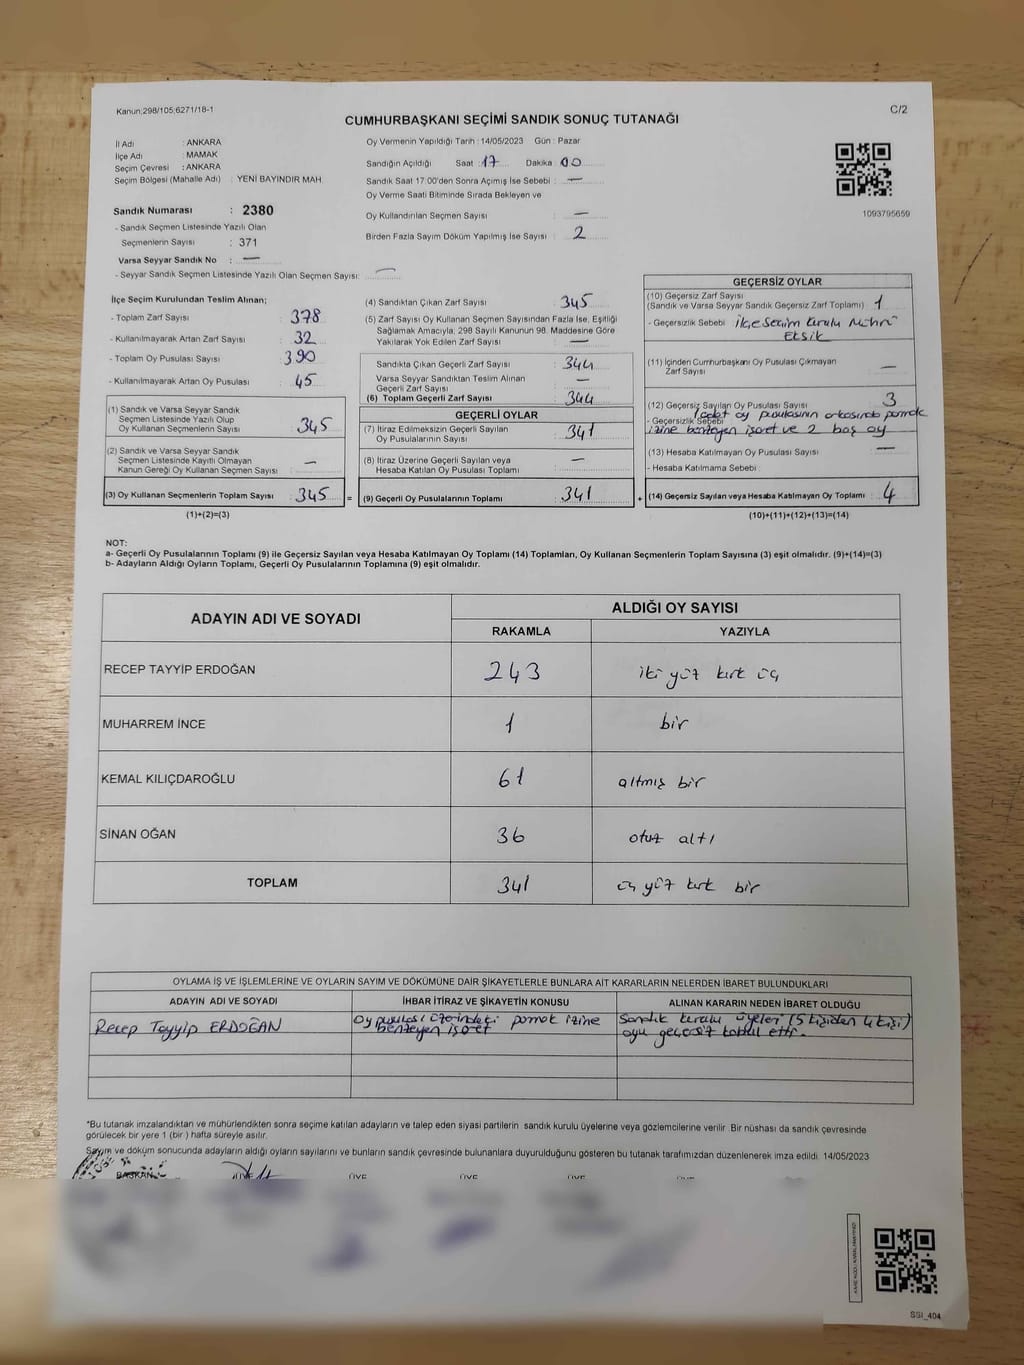 Kanun;298/105;6271/18-1
C/2
CUMHURBAŞKANI SEÇİMİ SANDIK SONUÇ TUTANAĞI
İl Adı : ANKARA
İlçe Adı : MAMAK
Seçim Çevresi : ANKARA
Seçim Bölgesi (Mahalle Adı) : YENİ BAYINDIR MAH.
Sandık Numarası : 2380
- Sandık Seçmen Listesinde Yazılı Olan
Seçmenlerin Sayısı : 371
Varsa Seyyar Sandık No : —
- Seyyar Sandık Seçmen Listesinde Yazılı Olan Seçmen Sayısı: —
Oy Vermenin Yapıldığı Tarih : 14/05/2023 Gün : Pazar
Sandığın Açıldığı Saat : 17 Dakika : 00
Sandık Saat 17:00'den Sonra Açımış İse Sebebi : —
Oy Verme Saati Bitiminde Sırada Bekleyen ve
Oy Kullandırılan Seçmen Sayısı : —
Birden Fazla Sayım Döküm Yapılmış İse Sayısı : 2
1093795659
İlçe Seçim Kurulundan Teslim Alınan;
- Toplam Zarf Sayısı : 378
- Kullanılmayarak Artan Zarf Sayısı : 32
- Toplam Oy Pusulası Sayısı : 390
- Kullanılmayarak Artan Oy Pusulası : 45
(1) Sandık ve Varsa Seyyar Sandık
Seçmen Listesinde Yazılı Olup
Oy Kullanan Seçmenlerin Sayısı : 345
(2) Sandık ve Varsa Seyyar Sandık
Seçmen Listesinde Kayıtlı Olmayan
Kanun Gereği Oy Kullanan Seçmen Sayısı : —
(3) Oy Kullanan Seçmenlerin Toplam Sayısı : 345 =
(1)+(2)=(3)
(4) Sandıktan Çıkan Zarf Sayısı : 345
(5) Zarf Sayısı Oy Kullanan Seçmen Sayısından Fazla İse, Eşitliği
Sağlamak Amacıyla; 298 Sayılı Kanunun 98. Maddesine Göre
Yakılarak Yok Edilen Zarf Sayısı : —
Sandıkta Çıkan Geçerli Zarf Sayısı : 344
Varsa Seyyar Sandıktan Teslim Alınan
Geçerli Zarf Sayısı : —
(6) Toplam Geçerli Zarf Sayısı : 344
GEÇERLİ OYLAR
(7) İtiraz Edilmeksizin Geçerli Sayılan
Oy Pusulalarının Sayısı : 341
(8) İtiraz Üzerine Geçerli Sayılan veya
Hesaba Katılan Oy Pusulası Toplamı : —
(9) Geçerli Oy Pusulalarının Toplamı : 341 +
GEÇERSİZ OYLAR
(10) Geçersiz Zarf Sayısı
(Sandık ve Varsa Seyyar Sandık Geçersiz Zarf Toplamı) : 1
- Geçersizlik Sebebi : ilçe seçim kurulu Mührü
Eksik
(11) İçinden Cumhurbaşkanı Oy Pusulası Çıkmayan
Zarf Sayısı : —
(12) Geçersiz Sayılan Oy Pusulası Sayısı : 3
- Geçersizlik Sebebi 1 adet oy pusulasının arkasında parmak
izine benzeyen işaret ve 2 boş oy
(13) Hesaba Katılmayan Oy Pusulası Sayısı : —
- Hesaba Katılmama Sebebi :
(14) Geçersiz Sayılan veya Hesaba Katılmayan Oy Toplamı : 4
(10)+(11)+(12)+(13)=(14)
NOT:
a- Geçerli Oy Pusulalarının Toplamı (9) ile Geçersiz Sayılan veya Hesaba Katılmayan Oy Toplamı (14) Toplamları, Oy Kullanan Seçmenlerin Toplam Sayısına (3) eşit olmalıdır. (9)+(14)=(3)
b- Adayların Aldığı Oyların Toplamı, Geçerli Oy Pusulalarının Toplamına (9) eşit olmalıdır.
ADAYIN ADI VE SOYADI ALDIĞI OY SAYISI
RAKAMLA YAZIYLA
RECEP TAYYİP ERDOĞAN 243 iki yüz kırk üç
MUHARREM İNCE 1 bir
KEMAL KILIÇDAROĞLU 61 altmış bir
SİNAN OĞAN 36 otuz altı
TOPLAM 341 üç yüz kırk bir
OYLAMA İŞ VE İŞLEMLERİNE VE OYLARIN SAYIM VE DÖKÜMÜNE DAİR ŞİKAYETLERLE BUNLARA AİT KARARLARIN NELERDEN İBARET BULUNDUKLARI
ADAYIN ADI VE SOYADI İHBAR İTİRAZ VE ŞİKAYETİN KONUSU ALINAN KARARIN NEDEN İBARET OLDUĞU
Recep Tayyip ERDOĞAN Oy pusulası üzerindeki parmak izine Sandık kurulu üyeleri (5 kişiden 4 kişi)
benzeyen işaret oyu geçersiz kabul etti.
*Bu tutanak imzalandıktan ve mühürlendikten sonra seçime katılan adayların ve talep eden siyasi partilerin sandık kurulu üyelerine veya gözlemcilerine verilir. Bir nüshası da sandık çevresinde
görülecek bir yere 1 (bir ) hafta süreyle asılır.
Sayım ve döküm sonucunda adayların aldığı oyların sayılarını ve bunların sandık çevresinde bulunanlara duyurulduğunu gösteren bu tutanak tarafımızdan düzenlenerek imza edildi. 14/05/2023
BAŞKAN ÜYE ÜYE ÜYE ÜYE ÜYE
SSI_404